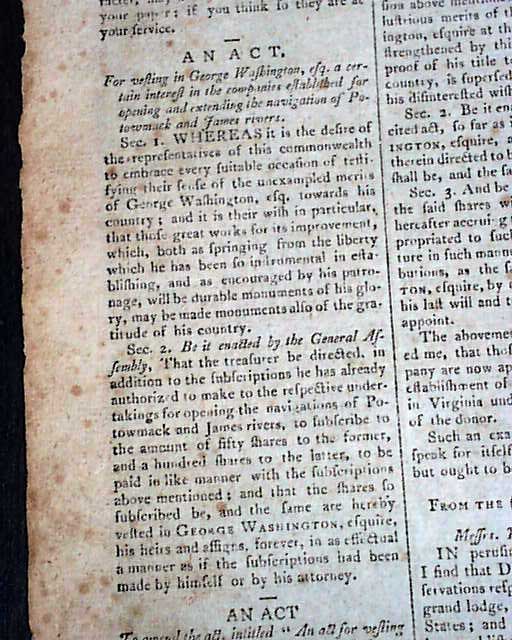 your paper; if you think so they are at
your service.
AN ACT,
For vesting in George Washington, esq. a cer-
tain interest in the companies established for
opening and extending the navigation of Po-
towmack and James rivers.
Sec. 1. WHEREAS it is the desire of
the representatives of this commonwealth
to embrace every suitable occasion of testi-
fying their sense of the unexampled merits
of George Washington, esq. towards his
country; and it is their wish in particular,
that those great works for its improvement,
which, both as springing from the liberty
which he has been so instrumental in esta-
blishing, and as encouraged by his patro-
nage, will be durable monuments of his glo-
ry, may be made monuments also of the gra-
titude of his country.
Sec. 2. Be it enacted by the General As-
sembly, That the treasurer be directed, in
addition to the subscriptions he has already
authorized to make to the respective under-
takings for opening the navigations of Po-
towmack and James rivers, to subscribe to
the amount of fifty shares to the former,
and a hundred shares to the latter, to be
paid in like manner with the subscriptions
above mentioned; and that the shares so
subscribed be, and the same are hereby
vested in GEORGE WASHINGTON, esquire,
his heirs and assigns, forever, in as effectual
a manner as if the subscriptions had been
made by himself or by his attorney.
AN ACT
To amend the act, intitled "An act for vesting
sion above
lustrious merits of
ington, esquire at
strengthened by
proof of his title
country, is
his disinterested
Sec. 2. Be it
cited act, so far as
INGTON, esquire,
therein directed to
shall be, and the
Sec. 3. And be
the said shares
hereafter accruing
propriated to
ture in such
butions, as the
TON, esquire, by
his last will and
appoint.
The
ed me, that
pany are now
establishment of
in Virginia
of the donor.
Such an
speak for
but ought to
FROM THE
Messrs.
IN
I find that
servations
grand lodge,
States; and